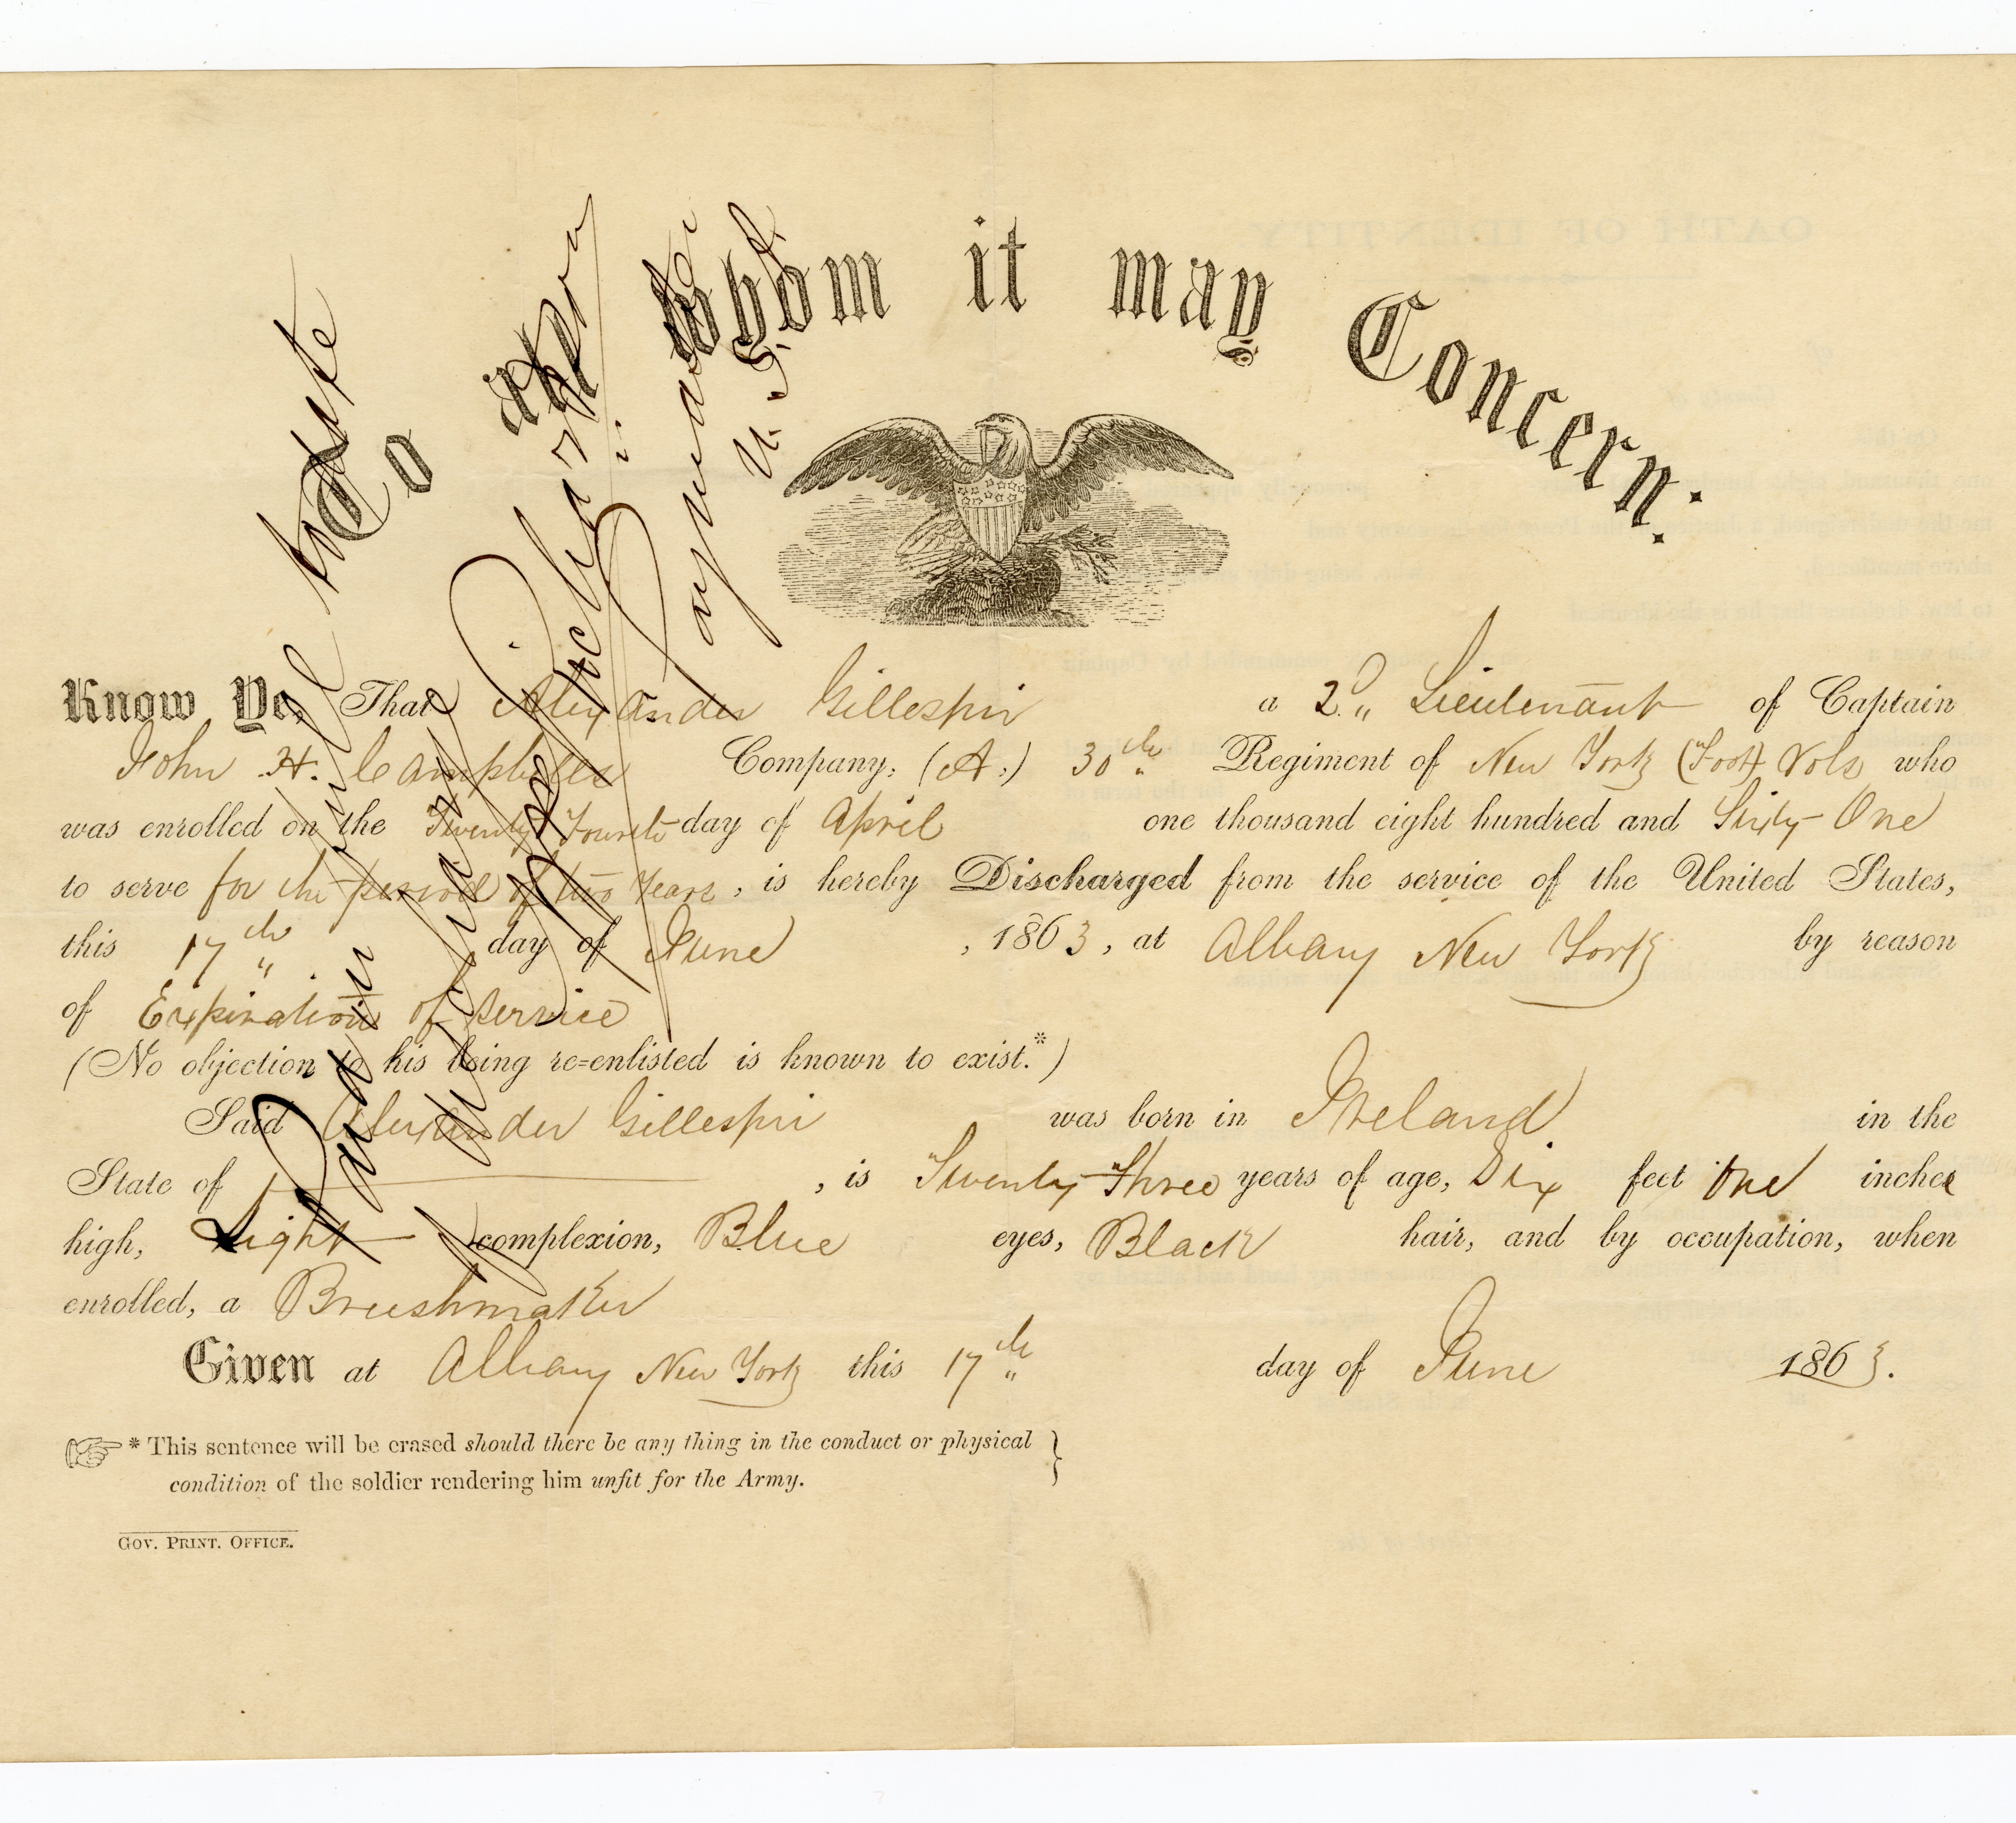 To all whom it may Concern:
Know Ye, That Alexander Gillespir a 2d Lieutenant of Captain
John H. Campbells Company, (A,) 30th Regiment of New York (Foot) Vols who
was enrolled on the Twenty Fourth day of April one thousand eight hundred and Sixty One
to serve for the period of two Years, is hereby Discharged from the service of the United States,
this 17th day of June, 1863, at Albany New York by reason
of Expiration of service
(No objection to his being re-enlisted is known to exist.*)
Said Alexander Gillespir was born in Ireland in the
State of , is Twenty Three years of age, Six feet One inches
high, Light complexion, Blue eyes, Black hair, and by occupation, when
enrolled, a Brushmaker
Given at Albany New York this 17th day of June 1863.
* This sentence will be erased should there be any thing in the conduct or physical
condition of the soldier rendering him unfit for the Army.
GOV. PRINT. OFFICE.
Paid in full to date
Richardson
Paymaster
U.S.A.
OATH OF IDENTITY